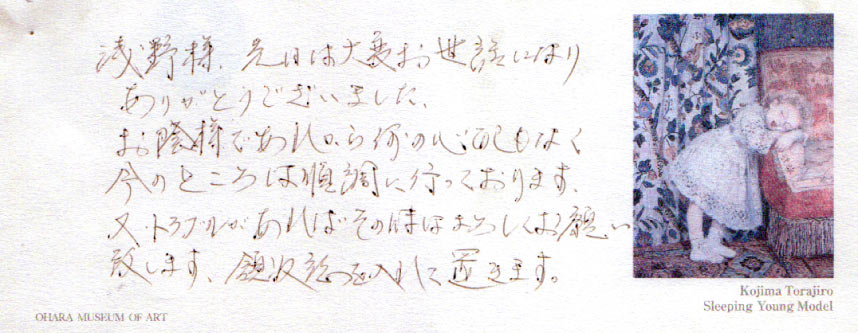 浅野様、先日は大変お世話になり
ありがとうございました、
お陰様であれから何の心配もなく
今のところは順調に行っております、
又、トラブルがあればその時はよろしくお願い
致します、領収証を入れて置きます。
Kojima Torajiro
Sleeping Young Model
OHARA MUSEUM OF ART